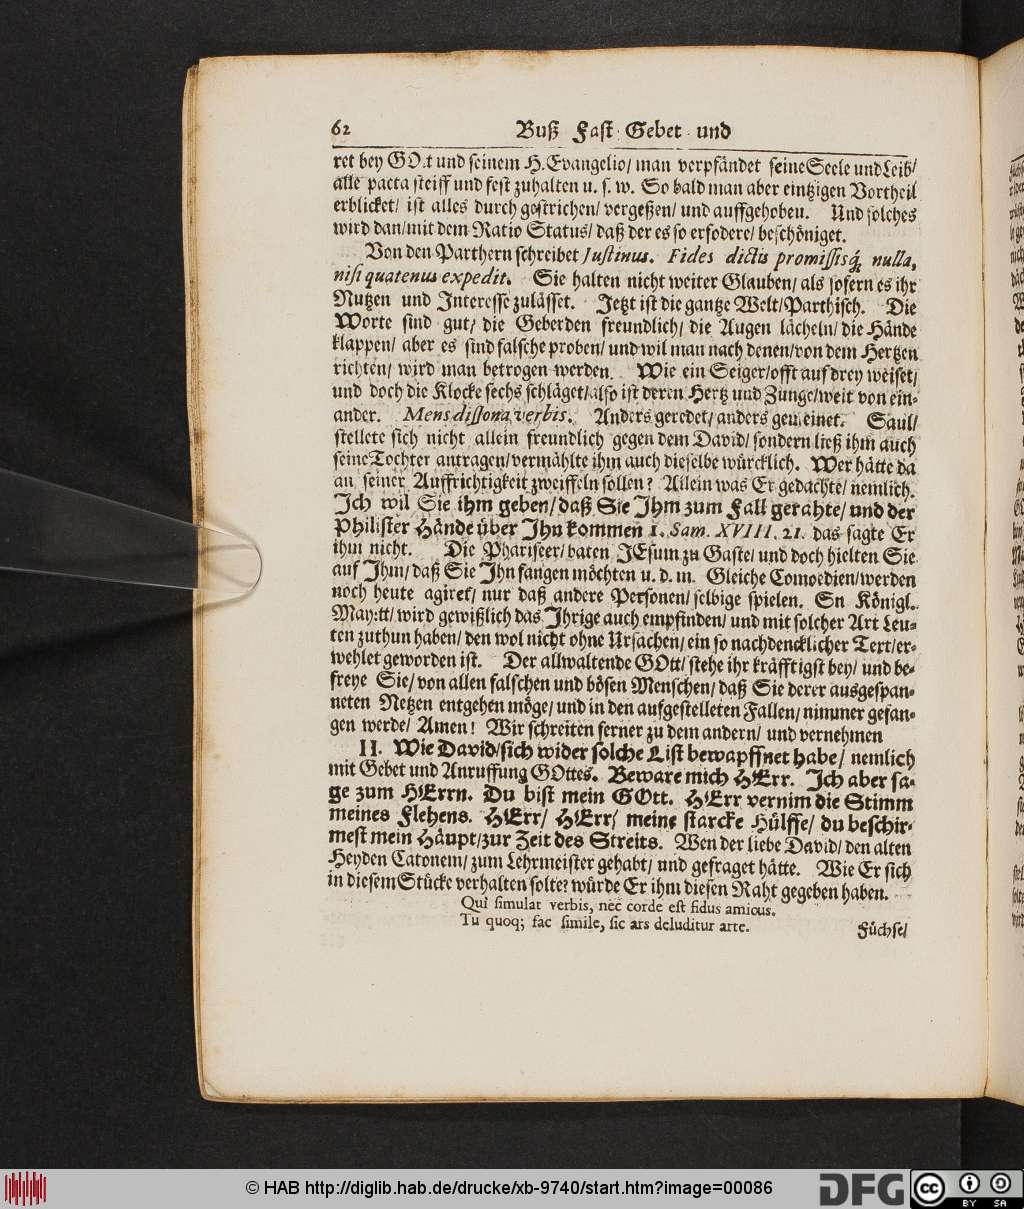 62 Buß Fast Gebet und
ret bey GOtt und seinem H. Evangelio/ man verpfändet seine Seele und Leib/
alle pacta steiff und fest zuhalten u. s. w. So bald man aber eintzigen Vortheil
erblicket/ ist alles durch gestrichen/ vergeßen/ und auffgehoben. Und solches
wird dan/ mit dem Ratio Status/ daß der es so erfodere/ beschöniget.
Von den Parthern schreibet Justinus. Fides dictis promissisq́; nulla,
nisi quatenus expedit. Sie halten nicht weiter Glauben/ als sofern es ihr
Nutzen und Interesse zulässet. Jetzt ist die gantze Welt/ Parthisch. Die
Worte sind gut/ die Geberden freundlich/ die Augen lächeln/ die Hände
klappen/ aber es sind falsche proben/ und wil man nach denen/ von dem Hertzen
richten/ wird man betrogen werden. Wie ein Seiger/ offt auf drey weiset/
und doch die Klocke sechs schläget/ also ist deren Hertz und Zunge/ weit von ein-
ander. Mens dissona verbis. Anders geredet/ anders gemeinet. Saul/
stellete sich nicht allein freundlich gegen dem David/ sondern ließ ihm auch
seine Tochter antragen/ vermählte ihm auch dieselbe würcklich. Wer hätte da
an seiner Auffrichtigkeit zweiffeln sollen? Allein was Er gedachte/ nemlich.
Ich wil Sie ihm geben/ daß Sie Ihm zum Fall gerahte/ und der
Philister Hände über Ihn kommen 1. Sam. XVIII. 21. das sagte Er
ihm nicht. Die Phariseer/ baten JEsum zu Gaste/ und doch hielten Sie
auf Ihm/ daß Sie Ihn fangen möchten u. d. m. Gleiche Comoedien/ werden
noch heute agiret/ nur daß andere Personen/ selbige spielen. En Königl.
May:tt/ wird gewißlich das Ihrige auch empfinden/ und mit solcher Art Leu-
ten zuthun haben/ den wol nicht ohne Ursachen/ ein so nachdencklicher Text/ er-
wehlet geworden ist. Der allwaltende GOtt/ stehe ihr kräfftigst bey/ und be-
freye Sie/ von allen falschen und bösen Menschen/ daß Sie derer ausgespan-
neten Netzen entgehen möge/ und in den aufgestelleten Fallen/ nimmer gefan-
gen werde/ Amen! Wir schreiten ferner zu dem andern/ und vernehmen
II. Wie David/ sich wider solche List bewapffnet habe/ nemlich
mit Gebet und Anruffung GOttes. Beware mich HErr. Ich aber sa-
ge zum HErrn. Du bist mein GOtt. HErr vernim die Stimm
meines Flehens. HErr/ HErr/ meine starcke Hülffe/ du beschir-
mest mein Häupt/ zur Zeit des Streits. Wen der liebe David/ den alten
Heyden Catonem/ zum Lehrmeister gehabt/ und gefraget hätte. Wie Er sich
in diesem Stücke verhalten solte? würde Er ihm diesen Raht gegeben haben.
Qui simulat verbis, nec corde est fidus amicus.
Tu quoq; fac simile, sic ars deluditur arte.
Füchse/
© HAB http://diglib.hab.de/drucke/xb-9740/start.htm?image=00086
DFG
cc BY SA